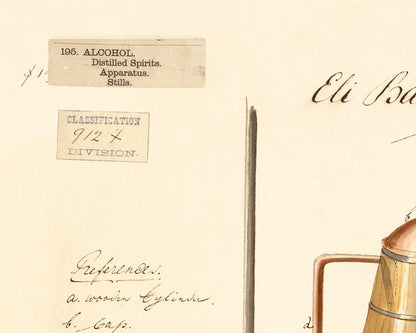 195. ALCOHOL.
Distilled Spirits.
Apparatus.
Stills.
Eli Ba
CLASSIFICATION
912 X
DIVISION
References.
a. wooden Cylinder.
b. Cap.
b
d